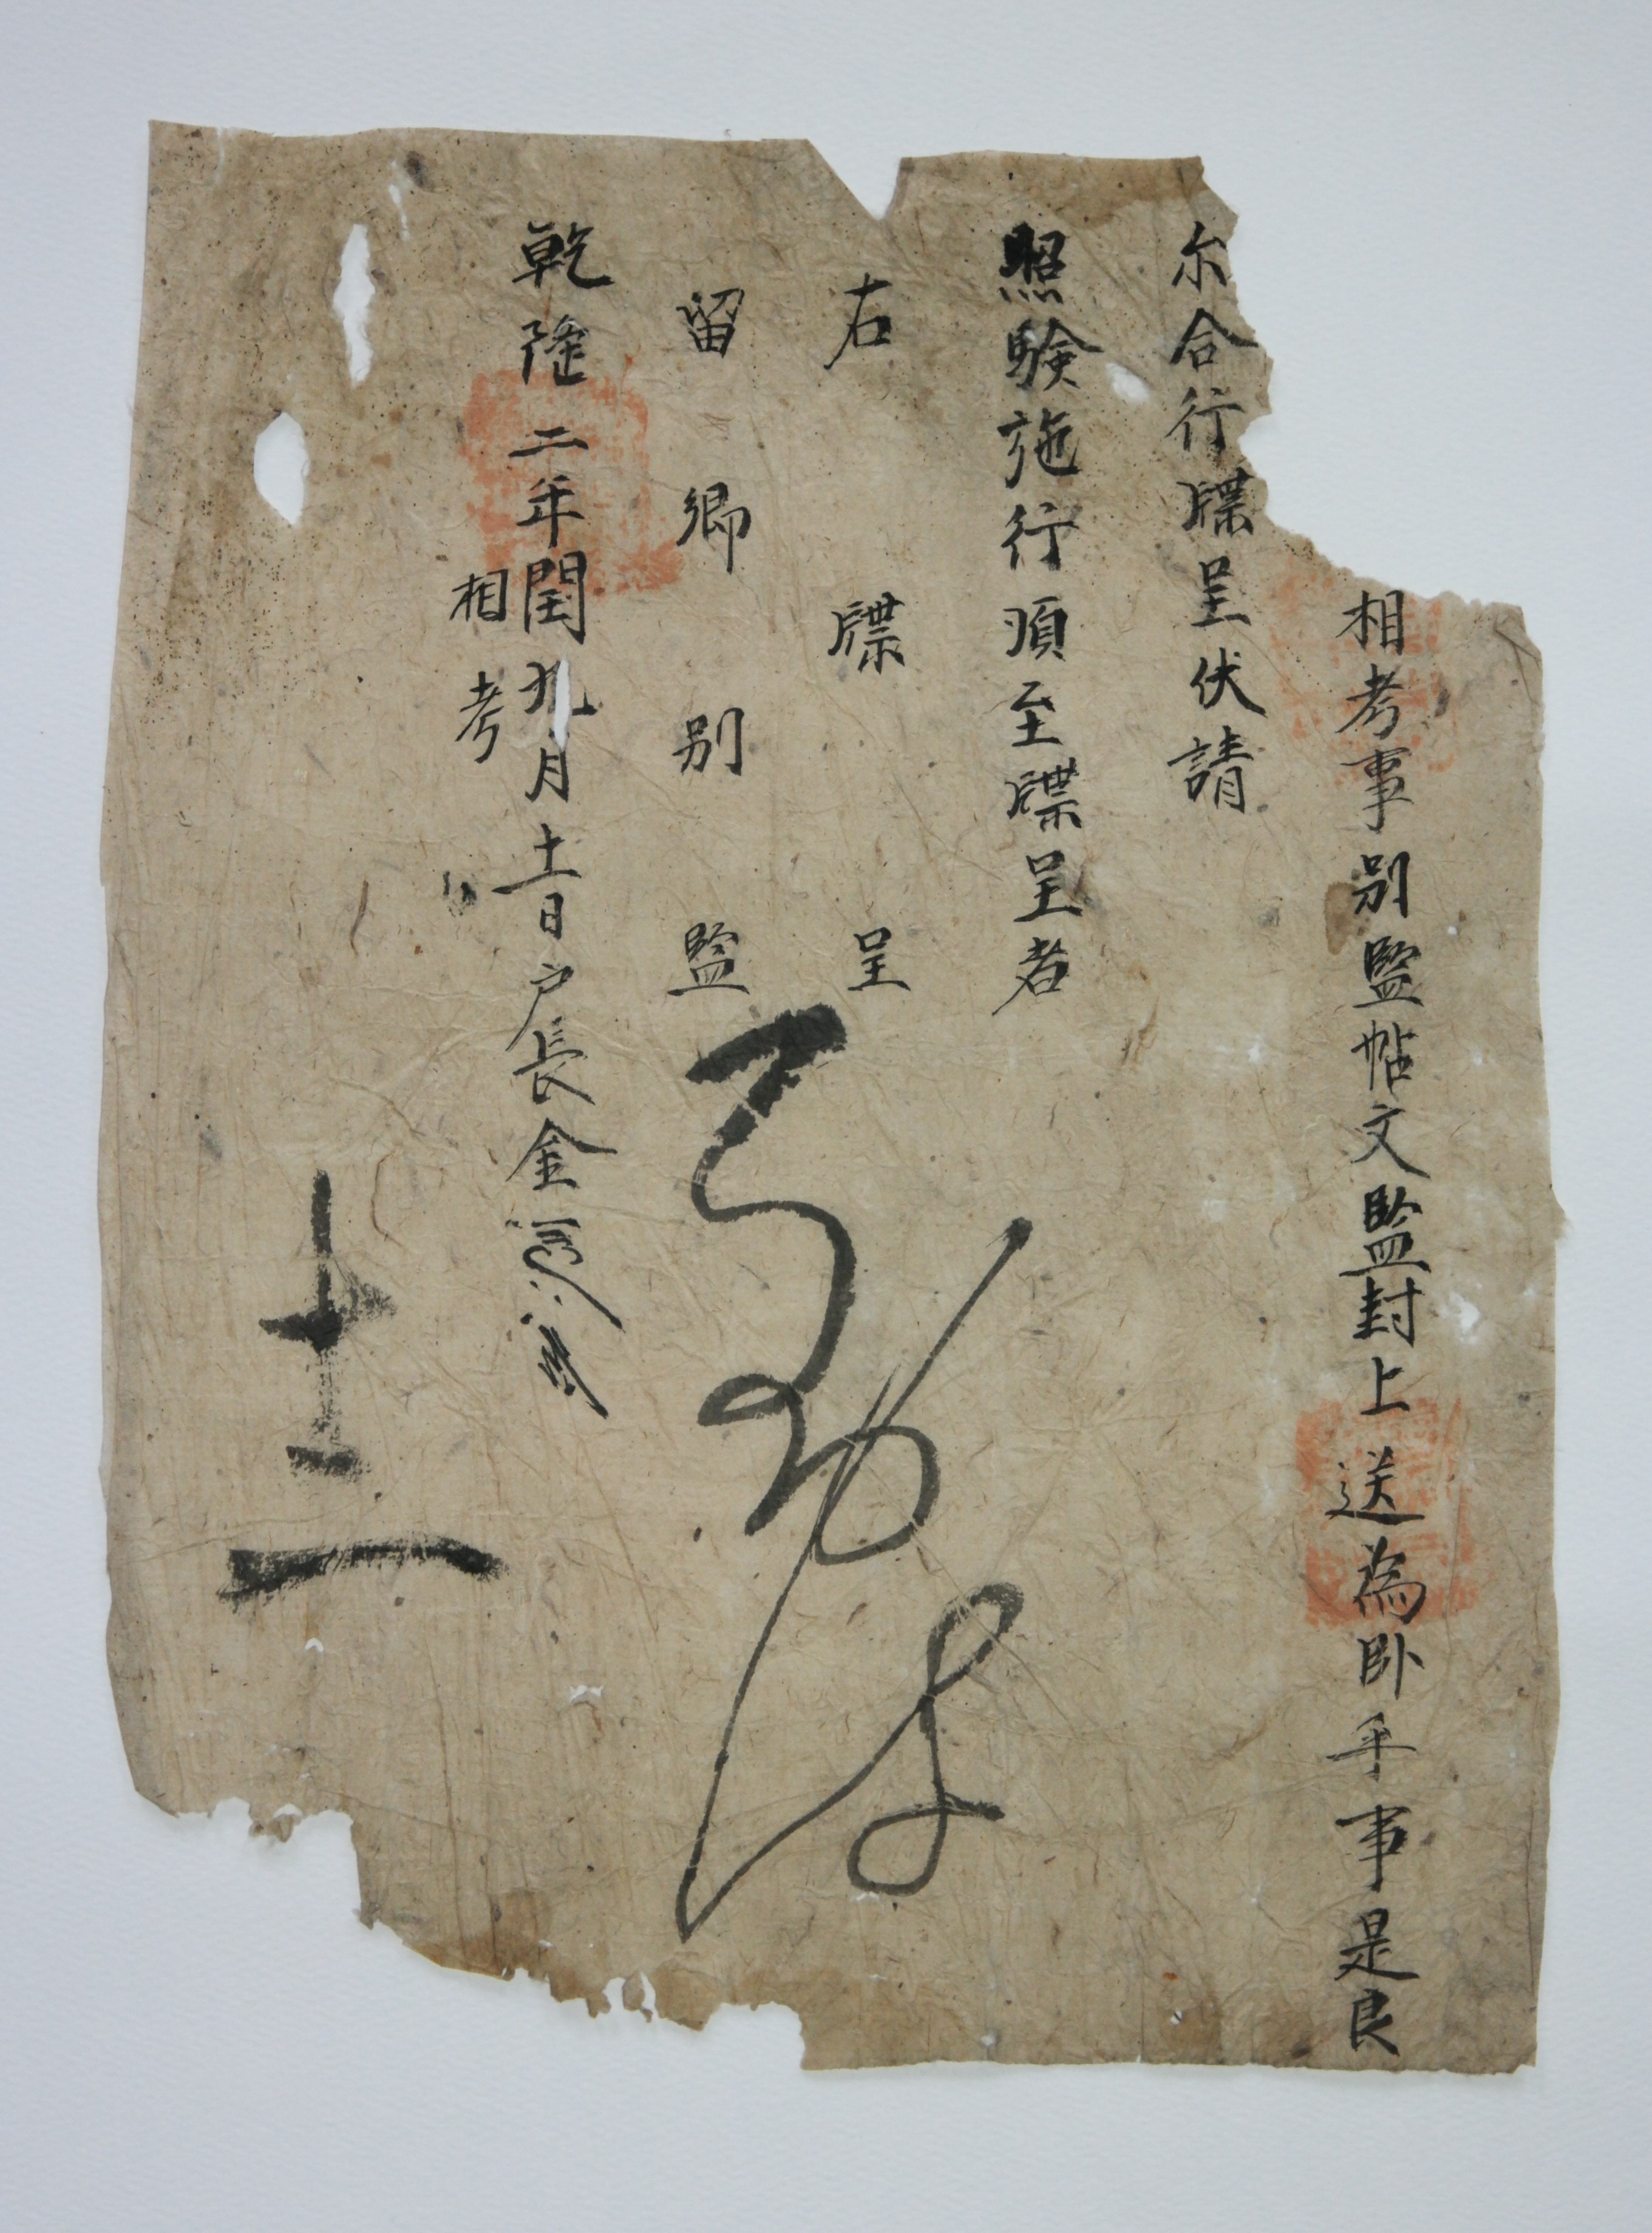 相考事別監帖文監封上送為卧乎事是良
尔合行牒呈伏請
照驗施行湏至牒呈者
右牒呈
留鄉別監
乾隆二年閏九月十一日戶長金
相考
十一